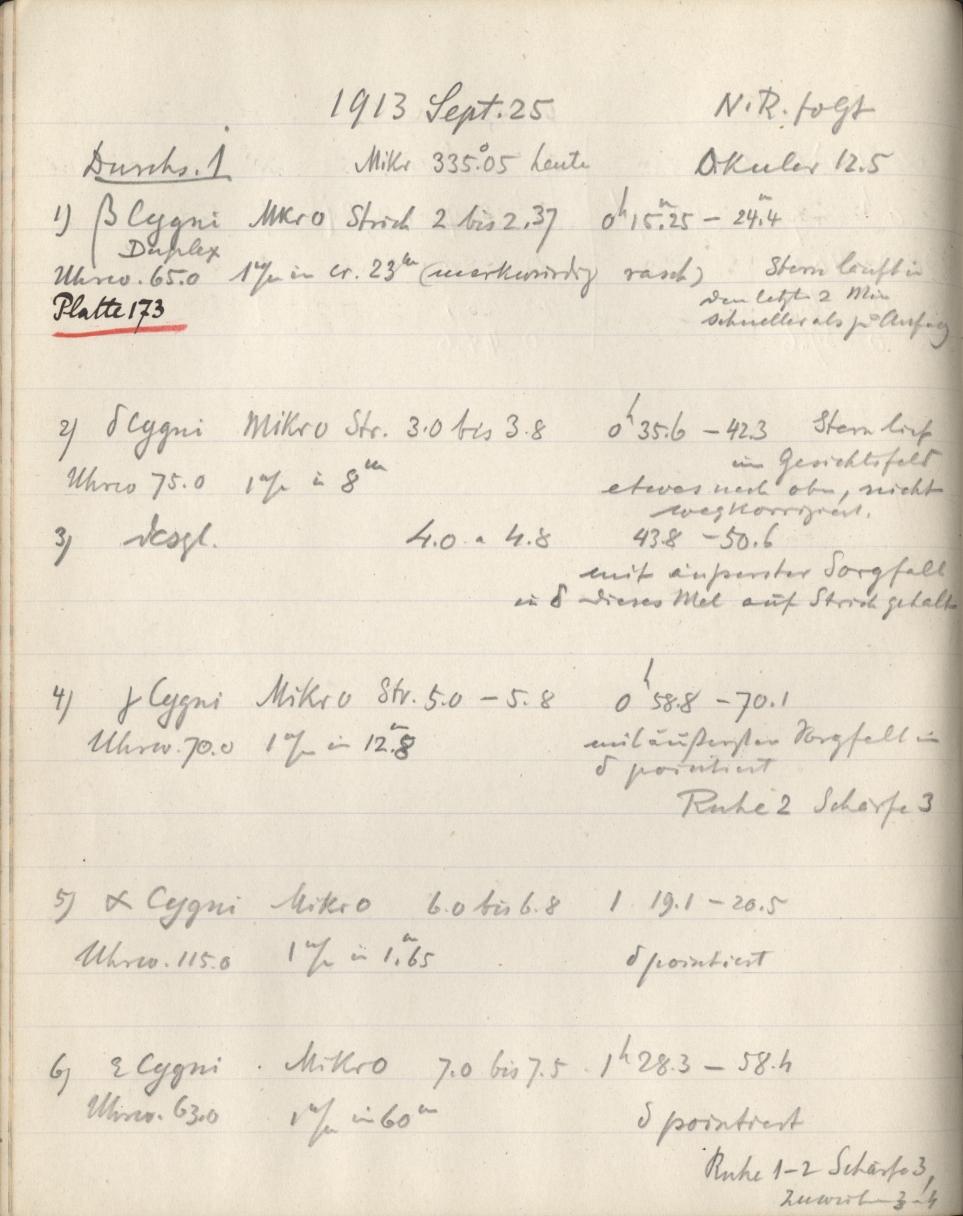 1913 Sept. 25 N.R. folgt
Durchs. 1 Mikr 335°.05 heute Okular 12.5
1) β Cygni Mikro Strich 2 bis 2.37 0ʰ 15ᵐ.25 – 24ᵐ.4
Duplex
Uhrw. 65.0 1 in cr. 23ᵐ (merkwürdig rasch) Stern läuft in
den letzt 2 Min
schneller als zu Anfang
Platte 173
2) δ Cygni Mikro Str. 3.0 bis 3.8 0ʰ 35.6 – 42.3 Stern lief
im Gesichtsfeld
Uhrw 75.0 1 in 8ᵐ
etwas nach oben, nicht
wegkorrigiert.
3) desgl. 4.0 " 4.8 43.8 – 50.6
mit äußerster Sorgfalt
in δ dieses Mal auf Strich gehalten
4) γ Cygni Mikro Str. 5.0 – 5.8 0ʰ 58.8 – 70.1
Uhrw. 70.0 1 in 12ᵐ.8 mit äußerster Sorgfalt in
δ pointiert
Ruhe 2 Schärfe 3
5) α Cygni Mikro 6.0 bis 6.8 1 19.1 – 20.5
Uhrw. 115.0 1 in 1ᵐ.65 δ pointiert
6) ε Cygni Mikro 7.0 bis 7.5 1ʰ 28.3 – 58.4
Uhrw. 63.0 1 in 60ᵐ δ pointiert
Ruhe 1–2 Schärfe 3,
zuweilen 3–4